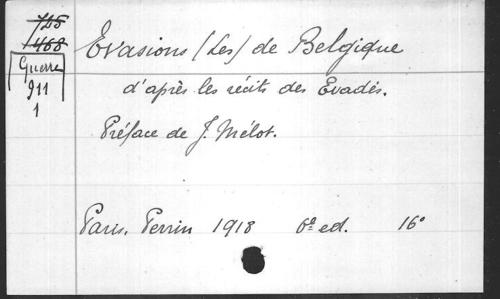 725
1468
Guerre
911
1
Evasions (Les) de Belgique
d'après les récits des Evadés.
Préface de J. Mélot.
Paris. Perrin 1918 6e ed. 16°